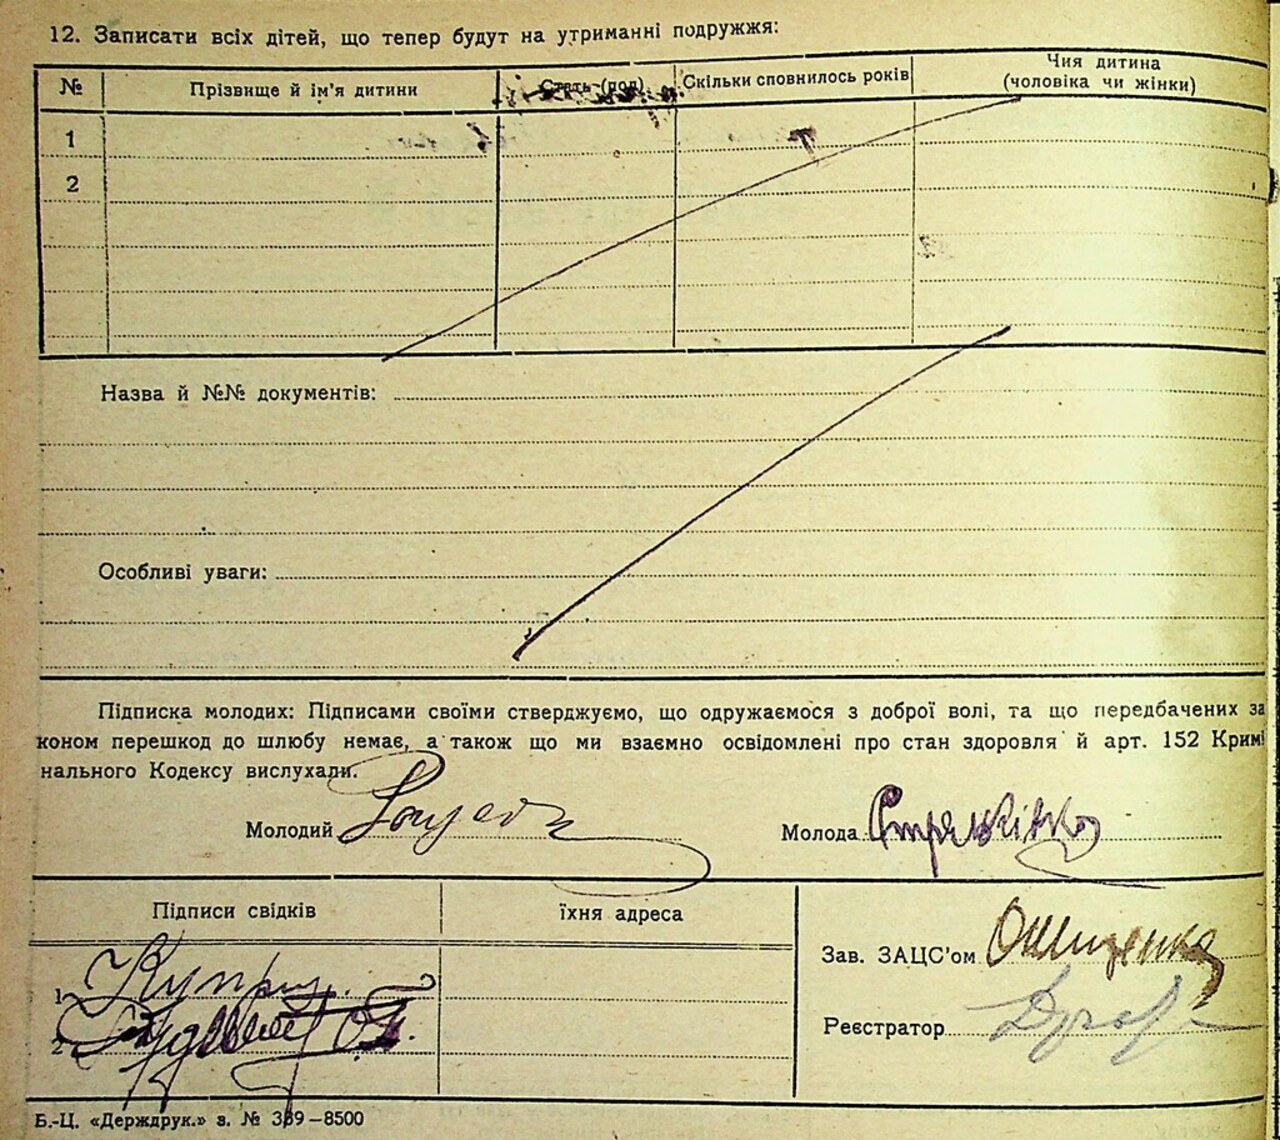 12. Записати всіх дітей, що тепер будут на утриманні подружжя:
№ Прізвище й ім'я дитини Стать (пол) Скільки сповнилось років Чия дитина (чоловіка чи жінки)
1
2
Назва й №№ документів:
Особливі уваги:
Підписка молодих: Підписами своїми стверджуємо, що одружаємося з доброї волі, та що передбачених за
коном перешкод до шлюбу немає, а також що ми взаємно освідомлені про стан здоровля й арт. 152 Кримі
нального Кодексу вислухали.
Молодий Молода
Підписи свідків їхня адреса
Зав. ЗАЦС'ом Онищенко
1
Реєстратор
2
Б.-Ц. «Держдрук.» з. № 339—8500